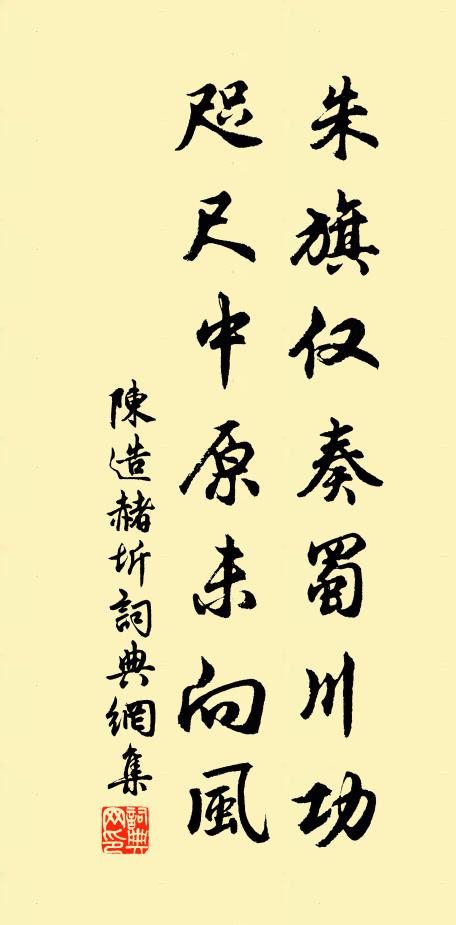 朱旗仅奏蜀川功
咫尺中原未向風
陳造赭圻詞典網集
詞典网印